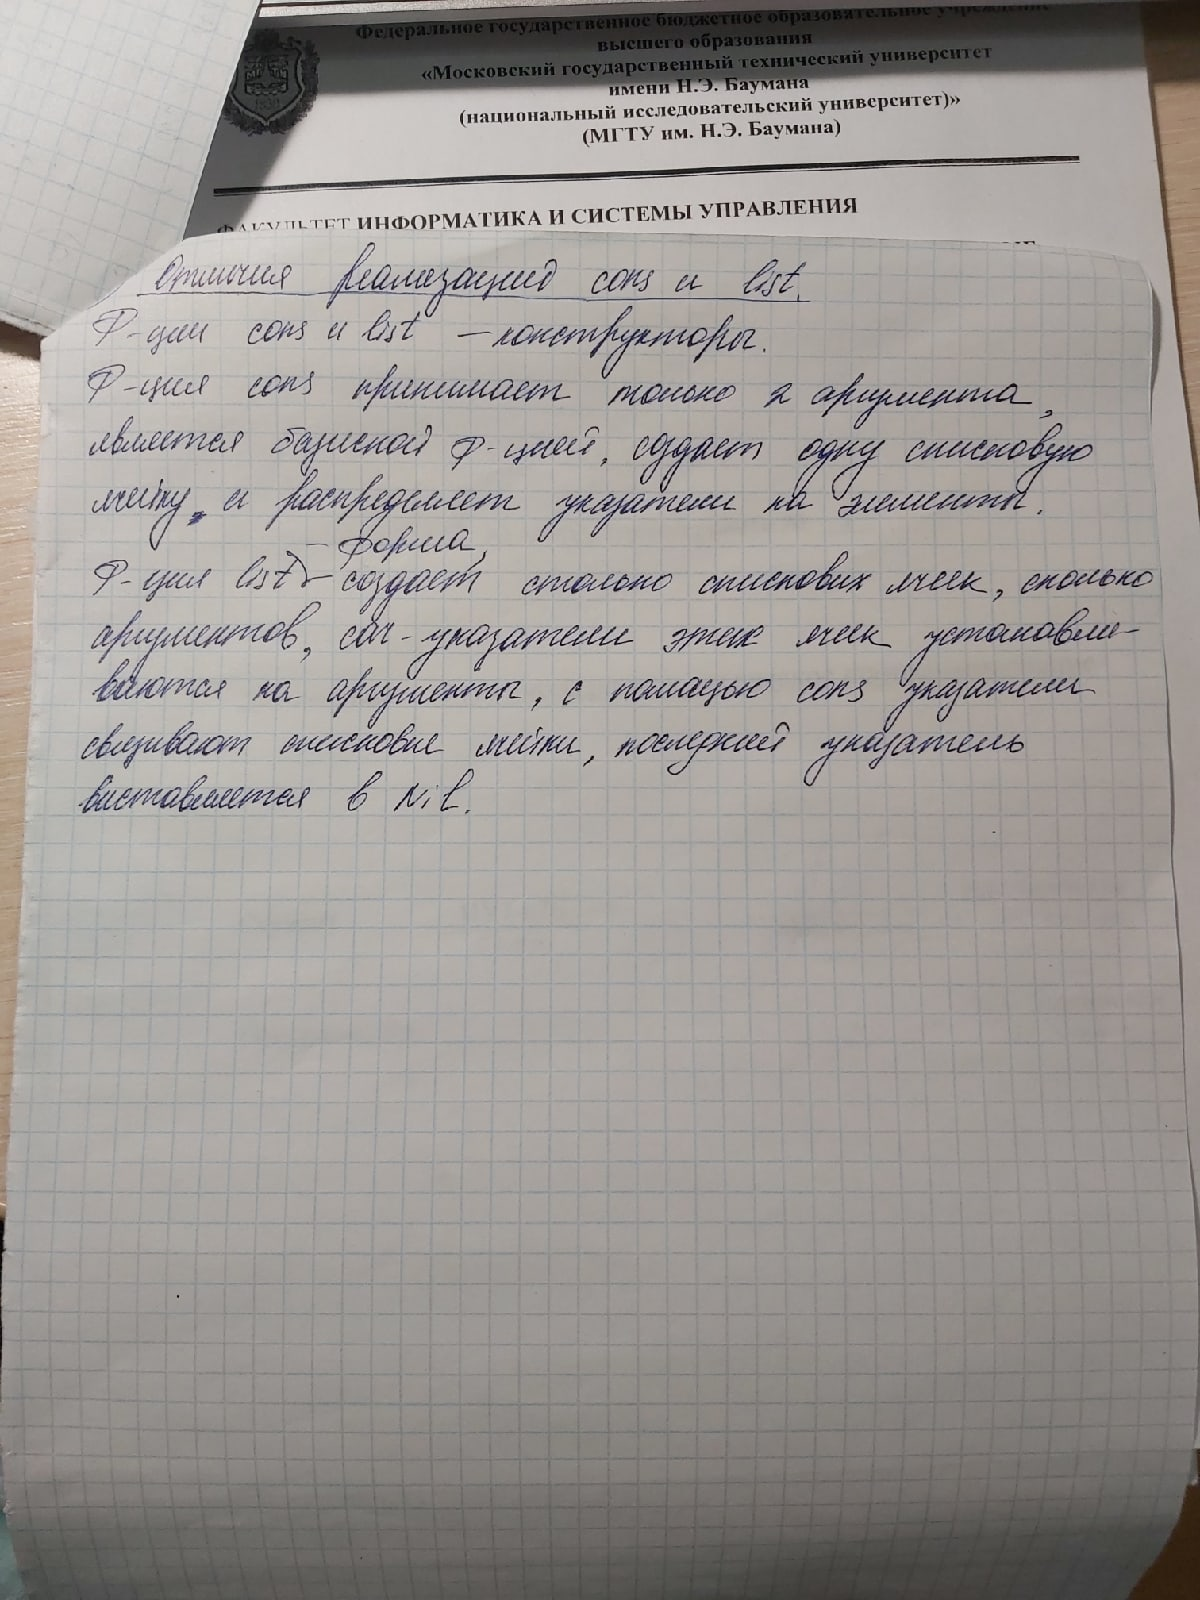 Федеральное государственное бюджетное образовательное учреждение
высшего образования
«Московский государственный технический университет
имени Н.Э. Баумана
(национальный исследовательский университет)»
(МГТУ им. Н.Э. Баумана)
ФАКУЛЬТЕТ ИНФОРМАТИКА И СИСТЕМЫ УПРАВЛЕНИЯ
Отличия реализаций cons и list.
Ф-ции cons и list – конструкторы.
Ф-ция cons принимает только 2 аргумента,
является базисной ф-цией, создает одну списковую
ячейку и распределяет указатели на элементы.
– форма,
Ф-ция list – создает столько списковых ячеек, сколько
аргументов, car-указатели этих ячеек устанавли-
ваются на аргументы, с помощью cons указатели
связывают списковые ячейки, последний указатель
выставляется в Nil.